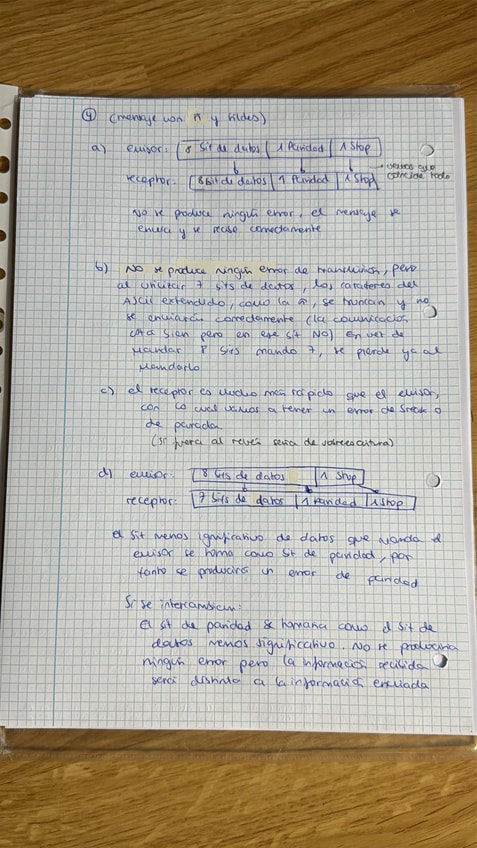 ④ (mensaje con ñ y tildes)
a) emisor: 8 bit de datos | 1 Paridad | 1 Stop
→ vemos que
coincide todo
receptor: 8 bit de datos | 1 Paridad | 1 Stop
No se produce ningún error, el mensaje se
envía y se recibe correctamente
b) No se produce ningún error de transmisión, pero
al utilizar 7 bits de datos, los caracteres del
ASCII extendido, como la ñ, se truncan y no
se enviarán correctamente (la comunicación
está bien pero en ese bit NO) En vez de
mandar 8 bits mando 7, se pierde ya al
mandarlo
c) el receptor es mucho más rápido que el emisor,
con lo cual vamos a tener un error de Break o
de parada.
(si fuera al revés sería de sobreescritura)
d) emisor: 8 bits de datos | 1 Stop
receptor: 7 bits de datos | 1 Paridad | 1 Stop
el bit menos significativo de datos que manda el
emisor se toma como bit de paridad, por
tanto se producirá un error de paridad
Si se intercambian:
el bit de paridad se tomaría como el bit de
datos menos significativo. No se produciría
ningún error pero la información recibida
será distinta a la información enviada